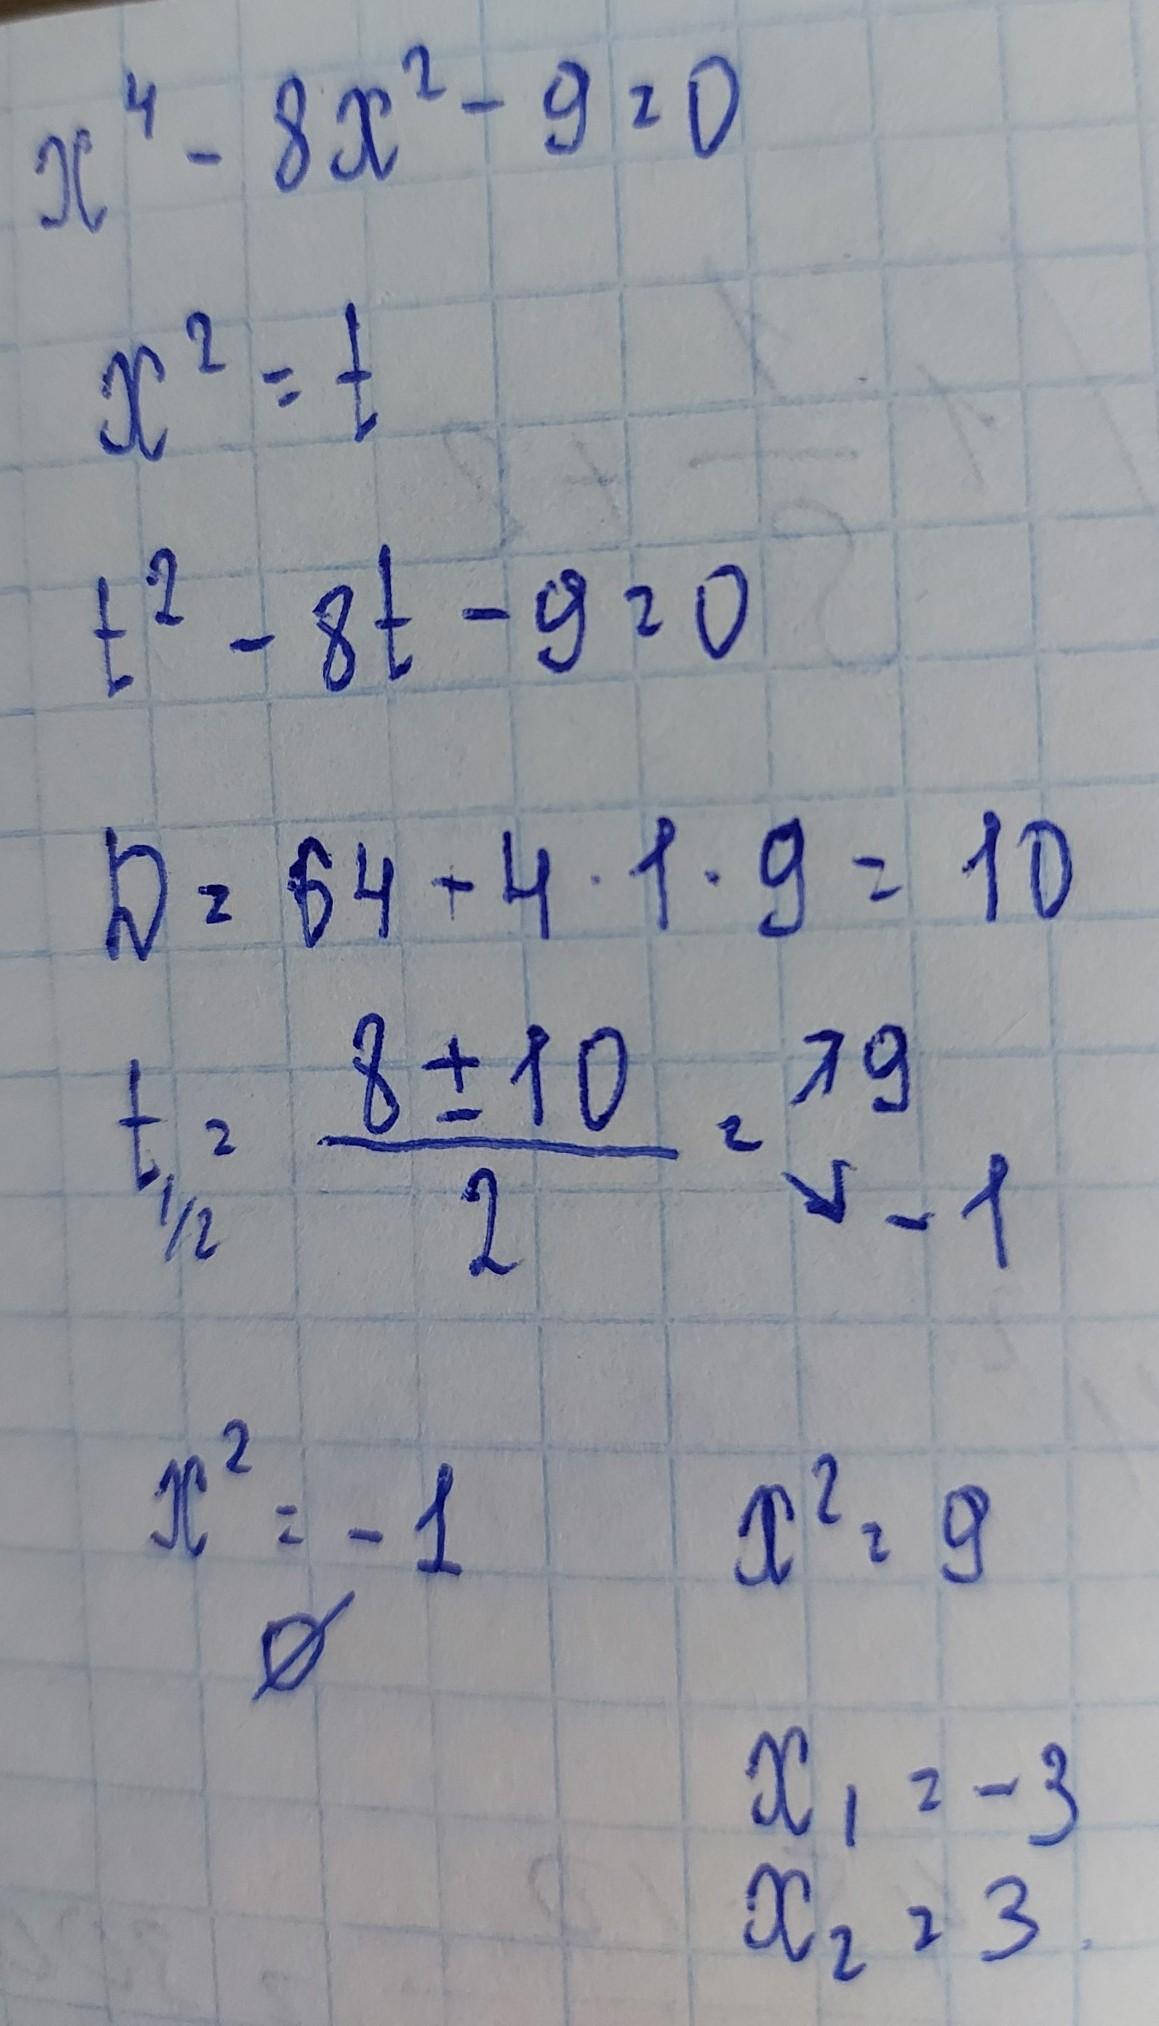 x⁴ - 8x² - 9 = 0
x² = t
t² - 8t - 9 = 0
D = 64 + 4 · 1 · 9 = 10
t₁/₂ = (8 ± 10)/2 = ↗ 9 ↘ - 1
x² = - 1 x² = 9
∅
x₁ = - 3
x₂ = 3